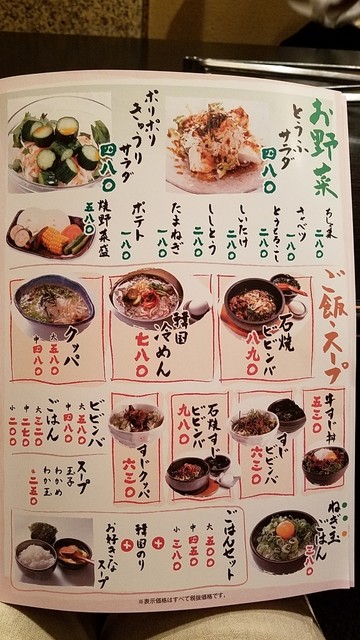 お野菜
とうふサラダ
四八〇
ポリポリきゅうりサラダ
四八〇
サラダ
キャベツ
一八〇
とうもろこし
二八〇
しいたけ
二八〇
ししとう
二八〇
たまねぎ
一八〇
ポテト
一八〇
焼野菜盛
五八〇
ご飯・スープ
石焼ビビンバ
八八〇
韓国冷めん
七八〇
クッパ
大 五八〇
中 四八〇
牛すじ丼
五三〇
すじビビンバ
六三〇
石焼すじビビンバ
九八〇
すじクッパ
六三〇
ビビンバ
大 五八〇
中 四八〇
ごはん
大 三二〇
中 二二〇
小 二〇〇
スープ
玉子
わかめ
わか玉
各 二五〇
ねぎ玉ごはん
三八〇
ごはんセット
大 五〇〇
中 四五〇
小 三八〇
+
韓国のり
+
お好きなスープ
※表示価格はすべて税抜価格です。